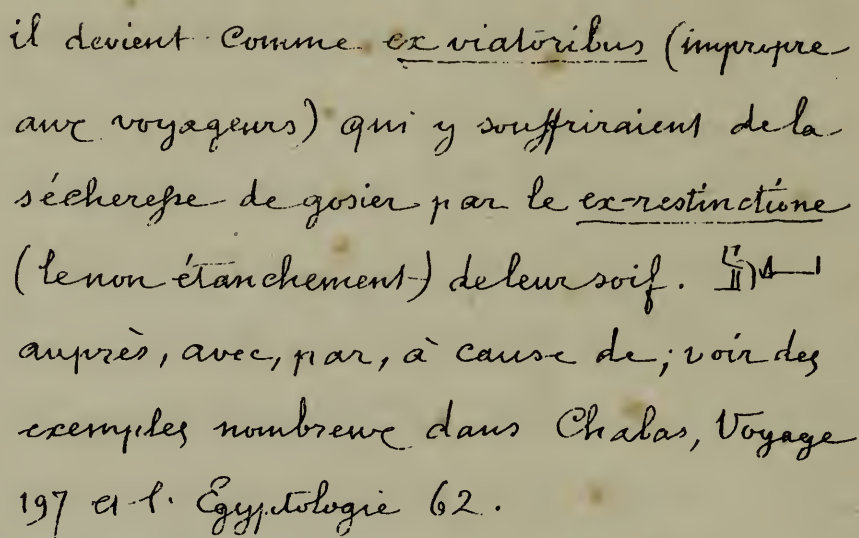 il devient comme ex viatoribus (impropre
aux voyageurs) qui y souffriraient de la
sécheresse de gosier par le ex-restinctione
(le non étanchement) de leur soif.
auprès, avec, par, à cause de; voir des
exemples nombreux dans Chabas, Voyage
197 et l. Egyptologie 62.